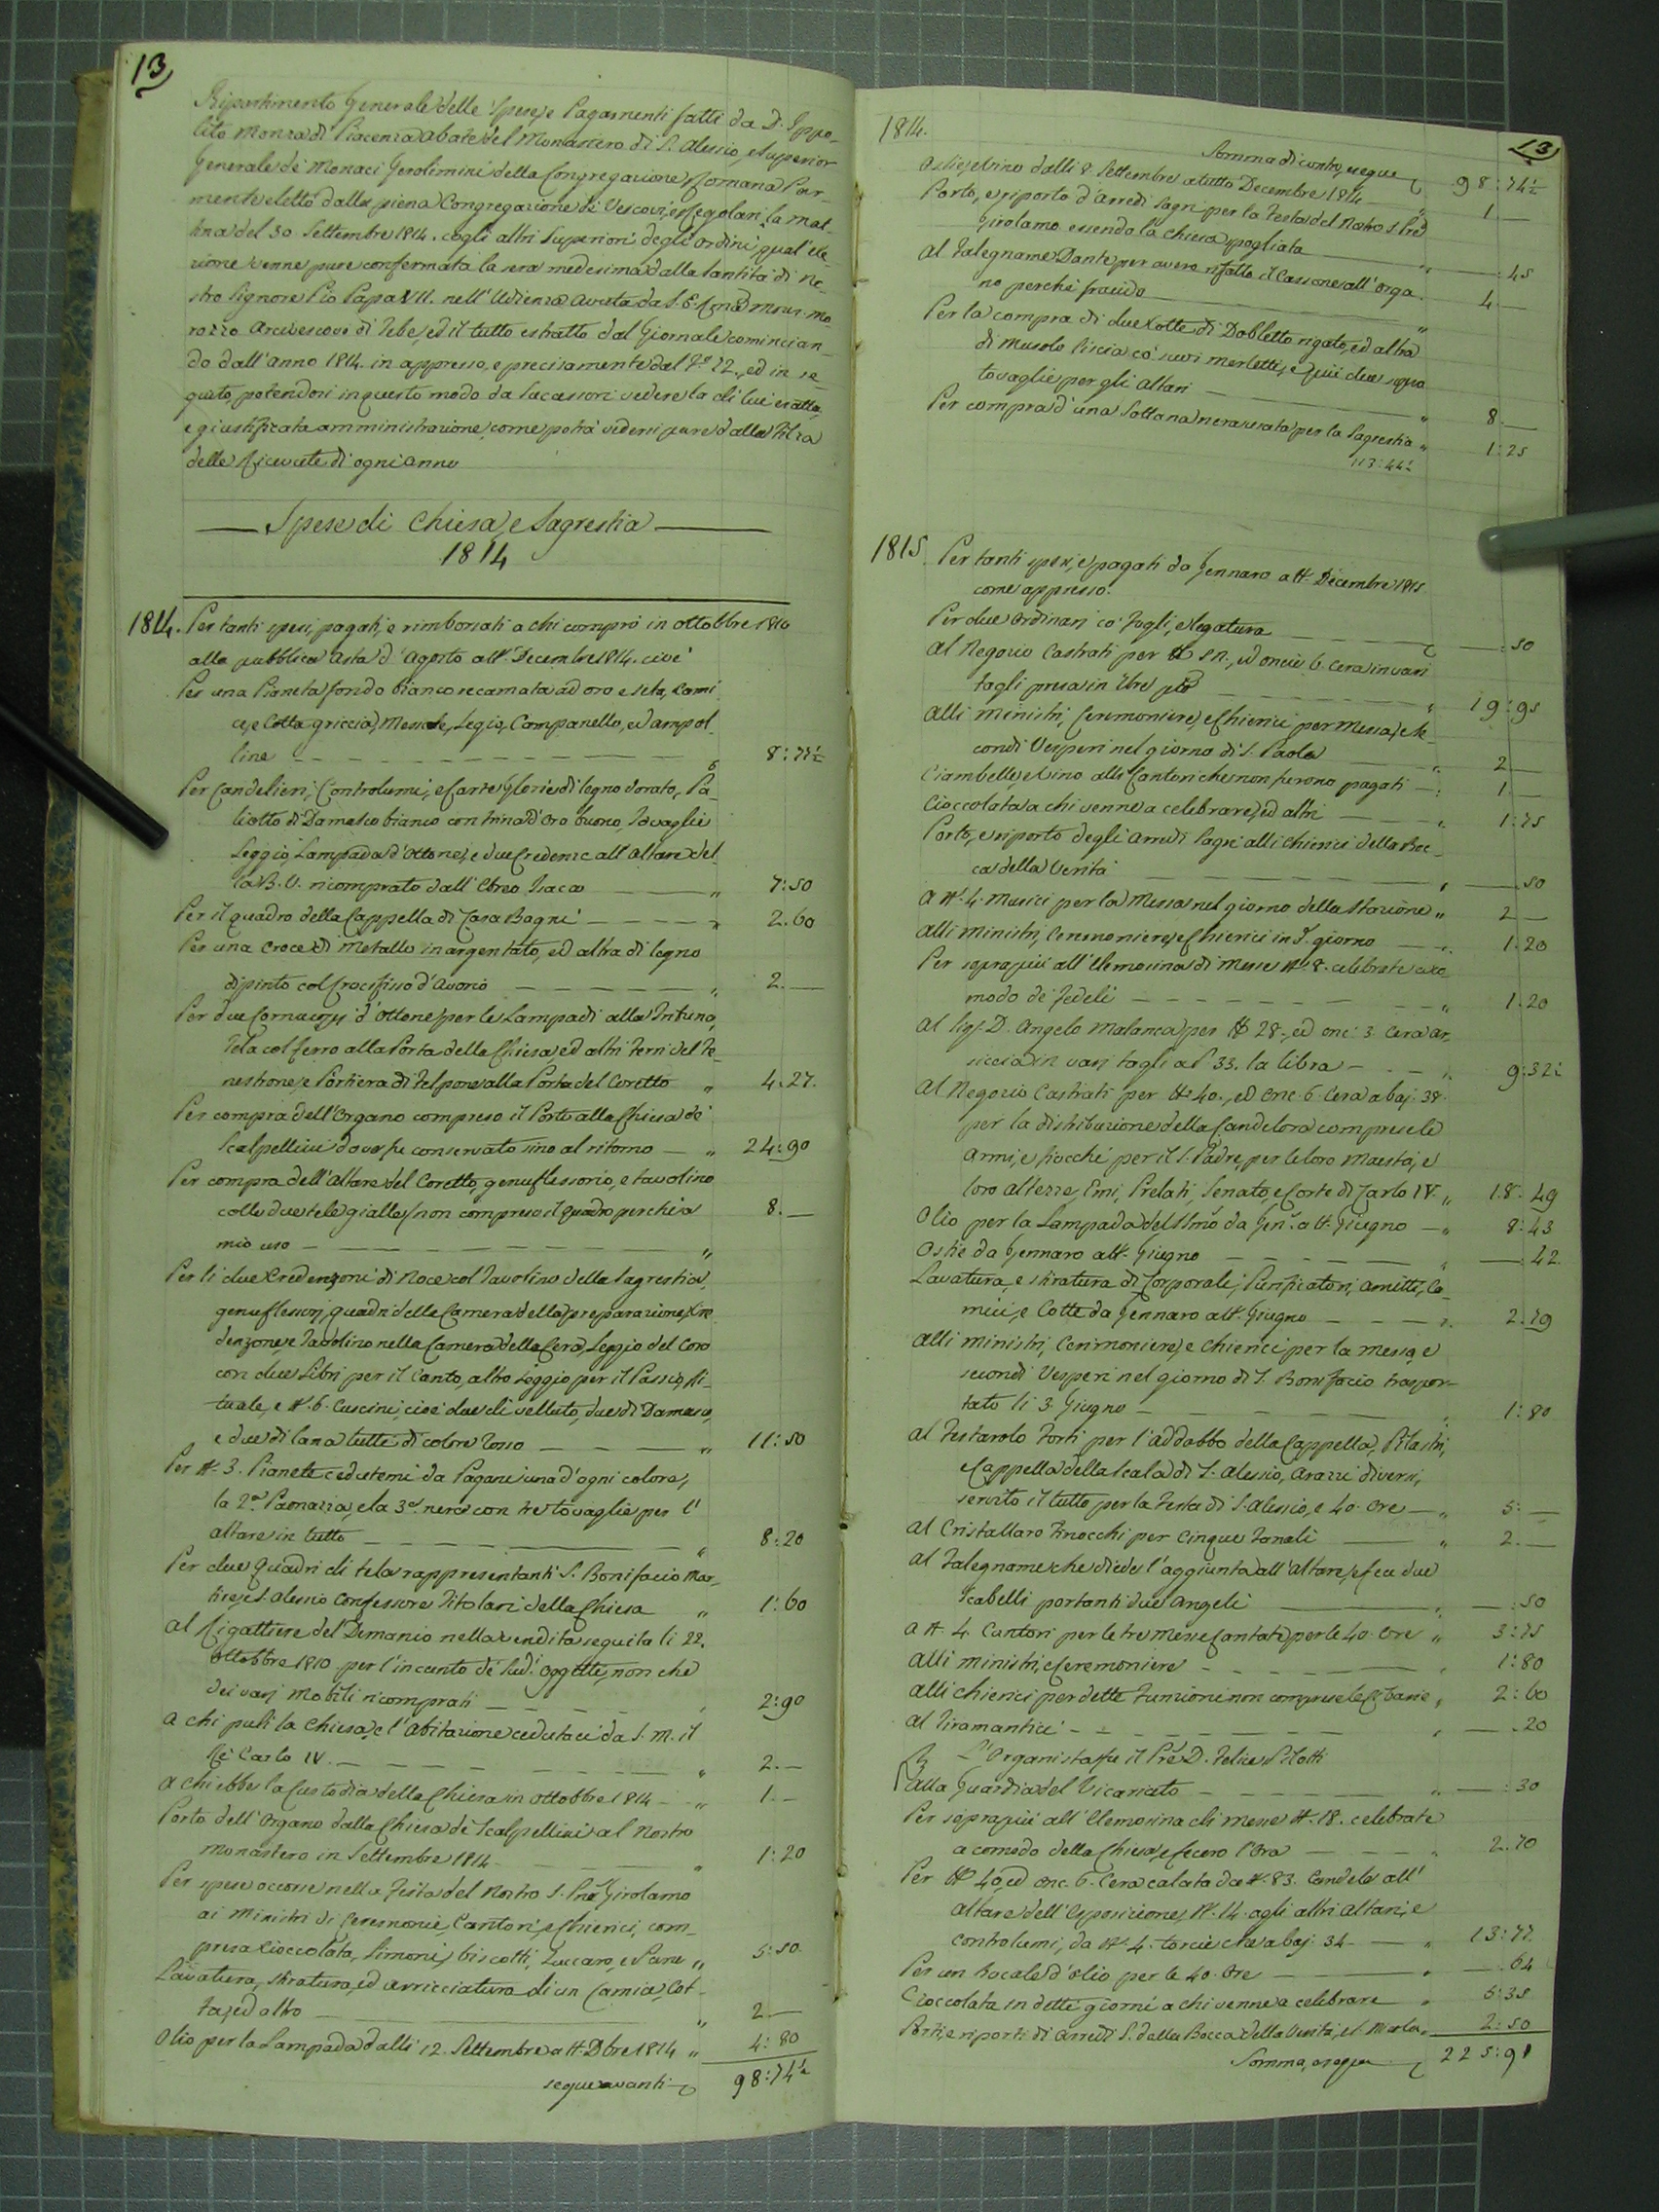 13
Ripartimento Generale delle Spese, e Pagamenti fatti da D. Ippo-
lito Monza di Piacenza Abate del Monastero di S. Alessio, e Superior
Generale de' Monaci Gerolimini della Congregazione Romana Par-
mente eletto dalla piena Congregazione de' Vescovi, e Regolari la mat-
tina del 30 Settembre 1814. cogli altri Superiori degli Ordini, qual' ele-
zione venne pure confermata la sera medesima dalla Santità di No-
stro Signore Pio Papa VII. nell' Udienza avuta da S. E. Mons. Mo-
rozzo Arcivescovo di Tebe, ed il tutto estratto dal Giornale comincian-
do dall' anno 1814. in appresso, e precisamente dal 12., ed in se-
guito, potendosi in questo modo da Successori vedere la di lui esatta,
e giustificata amministrazione, come potrà vedersi pure dalla Filza
delle Ricevute di ogni anno
Spese di Chiesa, e Sagrestia
1814
1814. Per tanti spesi, pagati, e rimborsati a chi comprò in Ottobbre 1810
alla pubblica Asta d' Agosto all' Decembre 1814. cioè
Per una Pianeta fondo bianco recamata ad oro e seta, Cami-
ce, e Cotta griccia, Messale, Legio, Campanello, ed ampol-
line 8:77½
Per Candelieri, Controlumi, e Carte Glorie di legno dorato, Pa-
liotto di Damasco bianco con trina d' Oro buono, Tovaglie
Leggio, Lampada d' Ottone, e due Credenze all' Altare del-
la B. V. ricomprato dall' Ebreo Isaca " 7:50
Per il quadro della Cappella di Casa Bagni " 2.60
Per una Croce di Metallo inargentato, ed altra di legno
dipinto col Crocifisso d' Avorio " 2.—
Per due Cornucopj d' Ottone per le Lampadi alla Tribuna,
Tela col ferro alla Porta della Chiesa, ed altri ferri del Fe-
nestrone, e Portiera di Felpone alla Porta del Coretto " 4:27.
Per compra dell' Organo compreso il Porto alla Chiesa de'
Scalpellini dove fu conservato sino al ritorno — " 24:90
Per compra dell' Altare del Coretto, genuflessorio, e tavolino
colle due tele gialle non compreso il quadro perchè a 8.—
mio uso "
Per li due Credenzoni di Noce col Tavolino della Sagrestia,
genuflessori, quadri della Camera della preparazione, Cre-
denzone, e Tavolino nella Camera della Cera, Leggio del Coro
con due Libri per il Canto, altro Leggio per il Passio, Ri-
tuale, e N. 6. Cuscini, cioè due di velluto, due di Damasco,
e due di lana tutti di colore rosso " 11:50
Per N. 3. Pianete cedutemi da Pagani una d' ogni colore,
la 2.a Paonazza, e la 3.a nera con tre tovaglie per l'
altare in tutto " 8:20
Per due Quadri di tela rappresentanti S. Bonifacio Mar-
tire, e S. Alessio Confessore Titolari della Chiesa " 1:60
Al Rigattiere del Demanio nella vendita seguita li 22.
Ottobbre 1810 per l' incanto de' sud.i oggetti, non che
dei varj Mobili ricomprati 2:90
A chi pulì la Chiesa, e l' Abitazione cedutaci da S. M. il
Rè Carlo IV. " 2.—
A chi ebbe la Custodia della Chiesa in Ottobbre 1814 " 1.—
Porto dell' Organo dalla Chiesa de' Scalpellini al Nostro
Monastero in Settembre 1814 " 1:20
Per spese occorse nella Festa del Nostro S. Pre Girolamo
ai Ministri di Ceremonie, Cantori, e Chierici, com-
presa Cioccolata, Limoni, biscotti, Zuccaro, e Pane " 5:50
Lavatura, stiratura, ed arricciatura di un Camice, Cot-
ta, ed altro " 2.—
Olio per la Lampada dalli 12. Settembre a tt. Dbre 1814 " 4:80
segue avanti 98:74½
1814. 13
Somma di contro, e segue 98:74½
Ostie, e vino dalli 8. Settembre a tutto Decembre 1814 " 1.—
Porto, e riporto d' Arredi sagri per la Festa del Nostro S. Pre
Girolamo essendo la Chiesa spogliata " :45
Al Falegname Dante per avere rifatto il Cassone all' Orga-
no perchè fracido " 4.—
Per la compra di due Cotte di Dobletto rigato, ed altra
di Musolo liscia co' suoi merletti, e più due sopra
tovaglie per gli Altari " 8.—
Per compra d' una Sottana nera usata per la Sagrestia " 1:25
113:44½
1815 Per tanti spesi, e pagati da Gennaro a tt. Decembre 1815
come appresso.
Per due Ordinarj co' Fogli, e legatura —:50
Al Negozio Castrati per 52., ed oncie 6. Cera in varj
tagli presa in " 19:95
Alli Ministri, Ceremoniere, e Chierici per Messa, e Se-
condi Vesperi nel giorno di S. Paola " 2.—
Ciambelle, e vino alli Cantori che non furono pagati 1.—
Cioccolata a chi venne a celebrare, ed altri 1:75
Porto, e riporto degli Arredi Sagri alli Chierici della Boc-
ca della Verità —.50
A N. 4. Musici per la Messa nel giorno della Stazione " 2.—
Alli Ministri, Ceremoniere, e Chierici in d. giorno 1.20
Per soprapiù all' Elemosina di Messe N. 8. celebrate a co-
modo de' Fedeli " 1.20
Al Sig. D. Angelo Malanca per 28., ed onc. 3. Cera ar-
siccia in varj tagli a B. 33. la libra 9:32½
Al Negozio Castrati per 40., ed Onc. 6. Cera a baj. 38.
per la distribuzione della Candelora comprese le
Armi, e fiocchi per il S. Padre, per le loro Maestà, e
loro Altezze, Emi, Prelati, Senato, e Corte di Carlo IV. " 18:49
Olio per la Lampada del SSmo da Gen.o a tt. Giugno " 8:43
Ostie da Gennaro a tt. Giugno " —:42.
Lavatura, e stiratura di Corporali, Purificatori, Amitti, Ca-
mici, e Cotte da Gennaro a tt. Giugno 2.79
Alli Ministri, Cerimoniere, e Chierici per la messa, e
secondi Vesperi nel giorno di S. Bonifacio traspor-
tato li 3. Giugno 1:80
Al Festarolo Forti per l' addobbo della Cappella, Pilastri,
e Cappella della Scala di S. Alessio, Arazzi diversi,
servito il tutto per la Festa di S. Alessio, e 40. Ore " 5:—
Al Cristallaro Finocchi per Cinque Fanali " 2.—
Al Falegname che diede l' aggiunta all' Altare, e fece due
Scabelli portanti due Angeli —:50
A N. 4. Cantori per le tre Messe Cantate per le 40. Ore " 3:75
Alli Ministri, e Ceremoniere 1:80
Alli Chierici per dette Funzioni non comprese le Cibarie, 2:60
Al Tiramantici —.20
L' Organista fu il Pre D. Felice Pilotti
Alla Guardia del Vicariato —:30
Per soprapiù all' Elemosina di messe N. 18. celebrate
a comodo della Chiesa, e fecero l' Ora 2.70
Per 40, ed onc. 6. Cera calata da N. 83. Candele all'
altare dell' Esposizione, N. 14. agli altri Altari, e
Controlumi, da N. 4. torcie che a baj. 34 — " 13:77.
Per un Bocale d' olio per le 40. Ore —.64
Cioccolata in detti giorni a chi venne a celebrare 5:35
Porti, e riporti di Arredi S. dalla Bocca della Verità, e S. Nicola 2:50
Somma, e segue 225:91